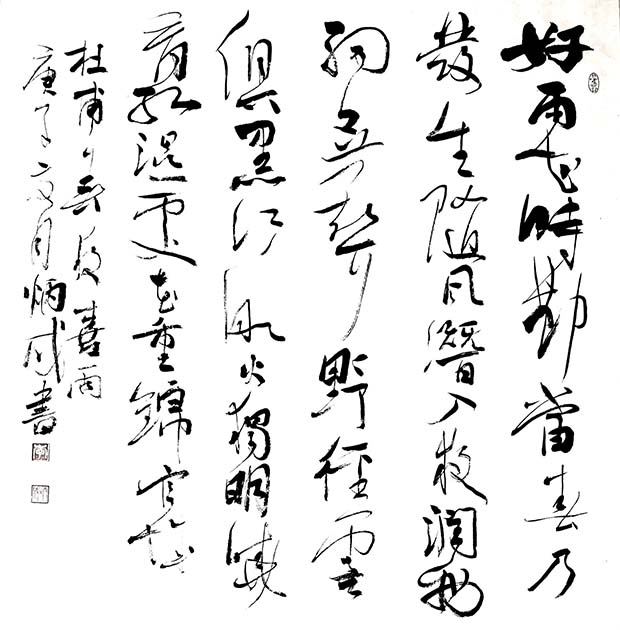 好雨知時節當春乃
發生隨風潛入夜潤物
細無聲野徑雲
俱黑江船火獨明曉
看紅濕處花重錦官城
杜甫春夜喜雨
庚子月炳成書